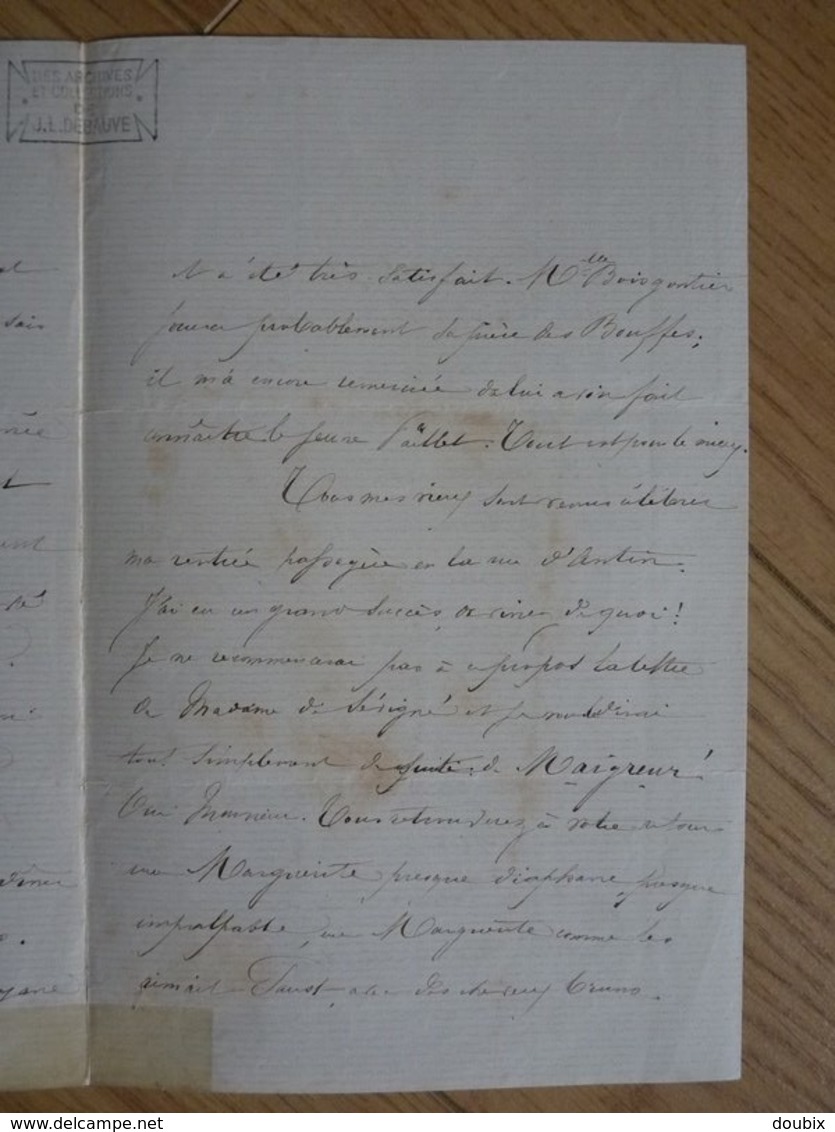 DES ARCHIVES
ET COLLECTIONS
DE
J.L. DEBAUVE
a été très satisfait. Mlle Boisgontier
jouera probablement sa pièce des Bouffes;
il m'a encore remerciée de lui avoir fait
connaître le jeune Paillet. Tout est pour le mieux.
Tous mes vieux sont venus célébrer
ma rentrée passagère en la rue d'Antin.
J'ai eu un grand succès, devinez de quoi!
Je ne recommencerai pas à ce propos la lettre
de Madame de Sévigné et je vous dirai
tout simplement de suite: de Maigreur!
Oui Monsieur. Vous retrouverez à votre retour
une Marguerite presque diaphane, presque
impalpable, une Marguerite comme les
aimait Faust avec des cheveux bruns.
doubix